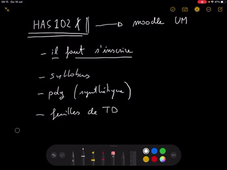 HAS102X → moodle UM
- il faut s'inscrire
- syllabus
- poly (synthétique)
- feuilles de TD